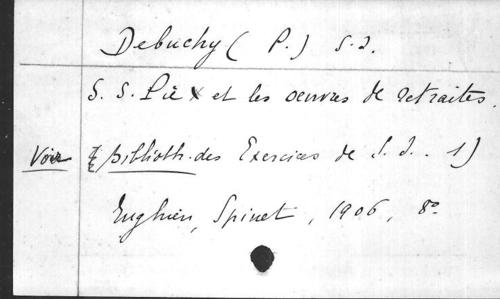 Debuchy (P.) s.J.
S. S. Pie X et les oeuvres de retraites.
Voir [Biblioth. des Exercices de S. I. 1)
Enghien, Spinet, 1906, 8º